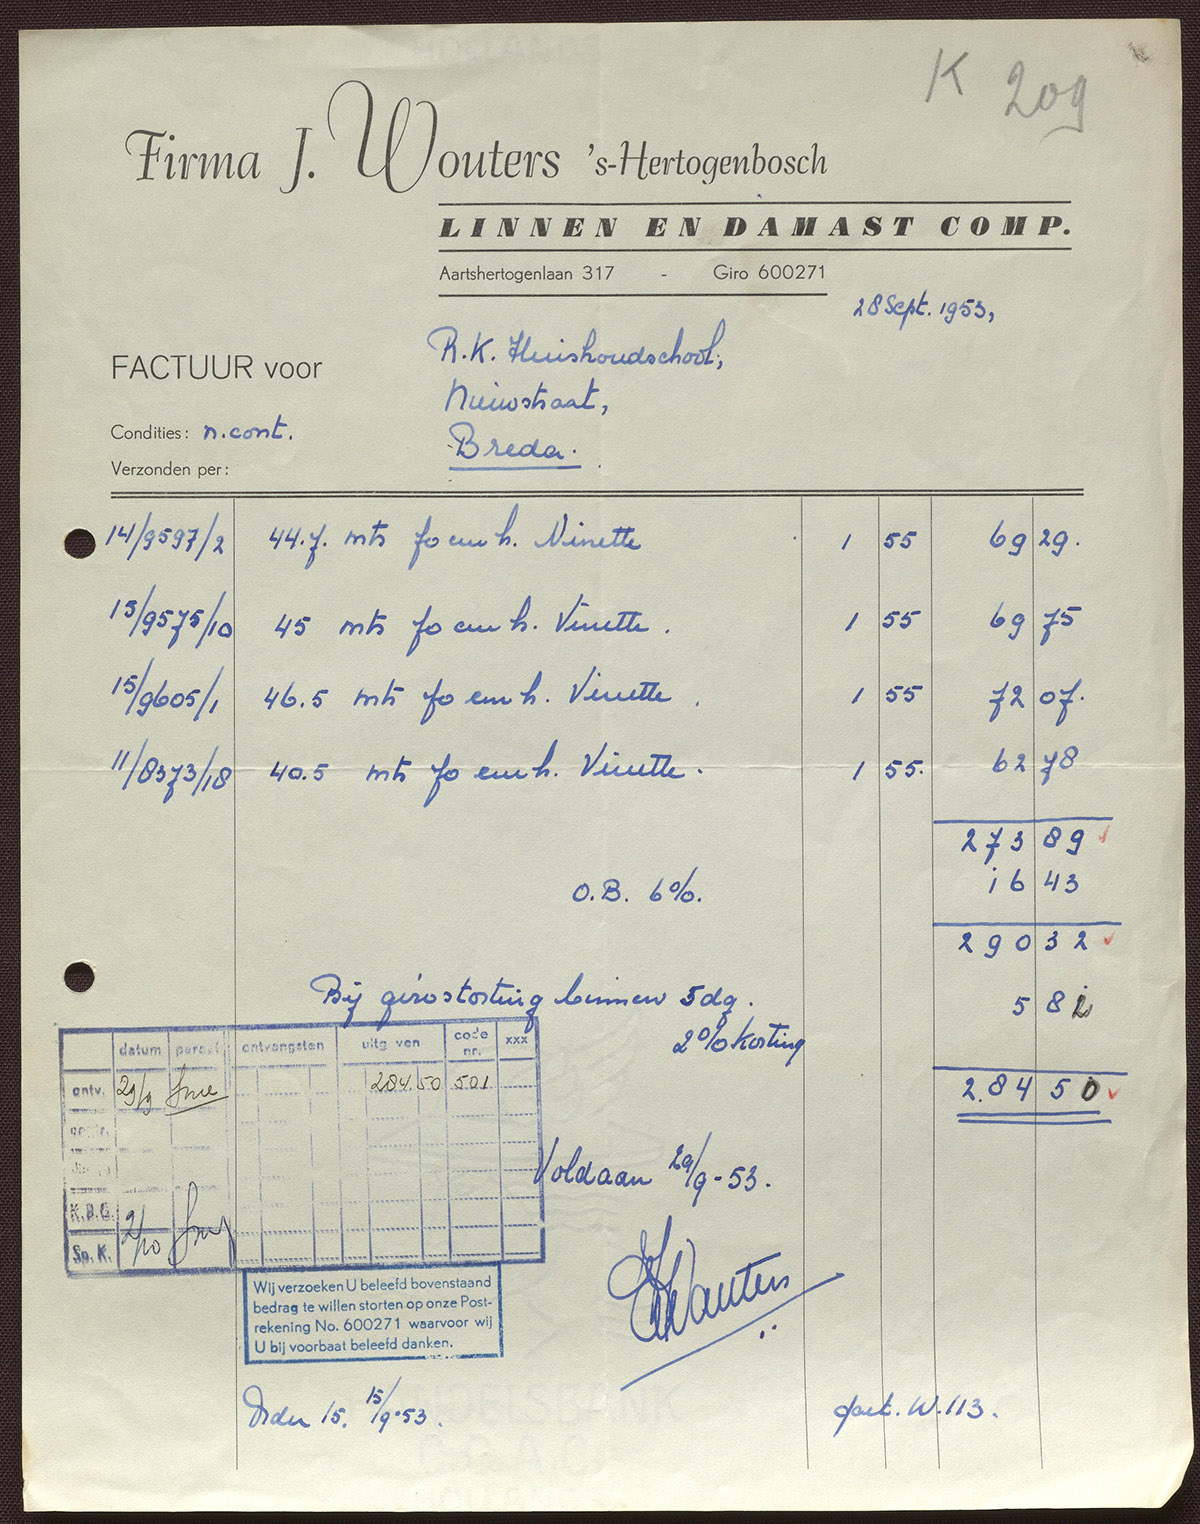 K 209
Firma J. Wouters 's-Hertogenbosch
LINNEN EN DAMAST COMP.
Aartshertogenlaan 317 - Giro 600271
28 Sept. 1953,
FACTUUR voor
R.K. Huishoudschool,
Nieuwstraat,
Breda.
Condities: n.cont.
Verzonden per:
14/9597/2 44.7. mts 70 cm h. Ninette 1 55 69 29.
15/9575/10 45 mts 70 cm h. Vinette. 1 55 69 75
15/9605/1 46.5 mts 70 cm h. Vinette. 1 55 72 07.
11/8373/18 40.5 mts 70 cm h. Vinette. 1 55. 62 78
273 89
O.B. 6%. 16 43
290 32
Bij girostorting binnen 5 dg. 5 82
2% korting
284 50
datum paraaf ontvangsten uitgaven code nr. xxx
ontv. 29/9 284.50 501
K.B.G.
Sp. K. 2/10
Voldaan 29/9-53.
JWouters
Wij verzoeken U beleefd bovenstaand
bedrag te willen storten op onze Post-
rekening No. 600271 waarvoor wij
U bij voorbaat beleefd danken.
Order 15. 15/9-53.
fact. W.113.